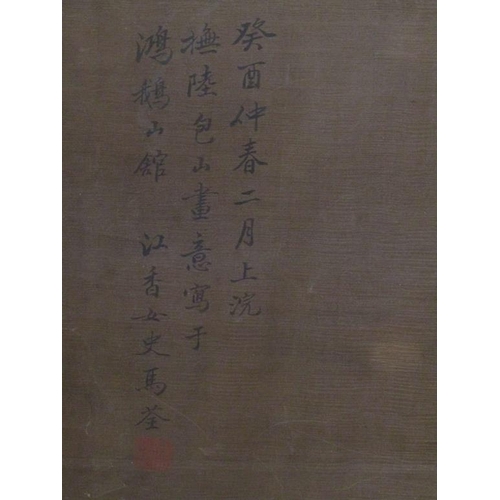 癸酉仲春二月上浣
撫陸包山畫意寫于
鴻鵝山館 江香女史馬荃